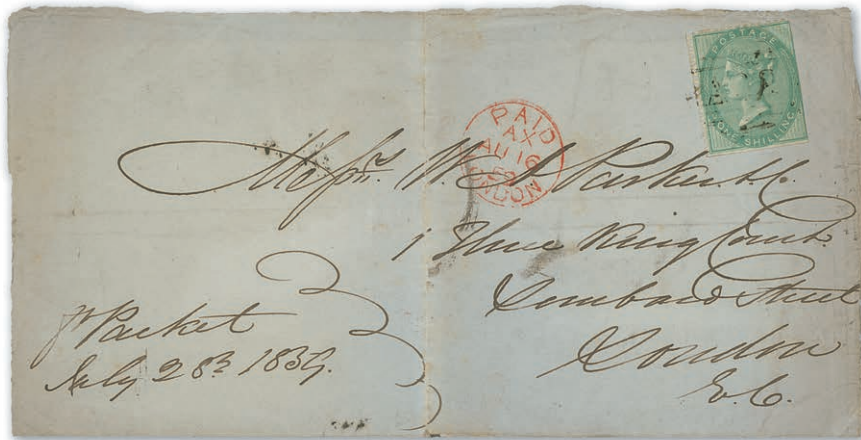 POSTAGE
ONE SHILLING
PAID
AX
AU 16
LONDON
Messrs. W.
1 Three King Court
Lombard Street
London
E.C.
pr Packet
July 28th 1859.